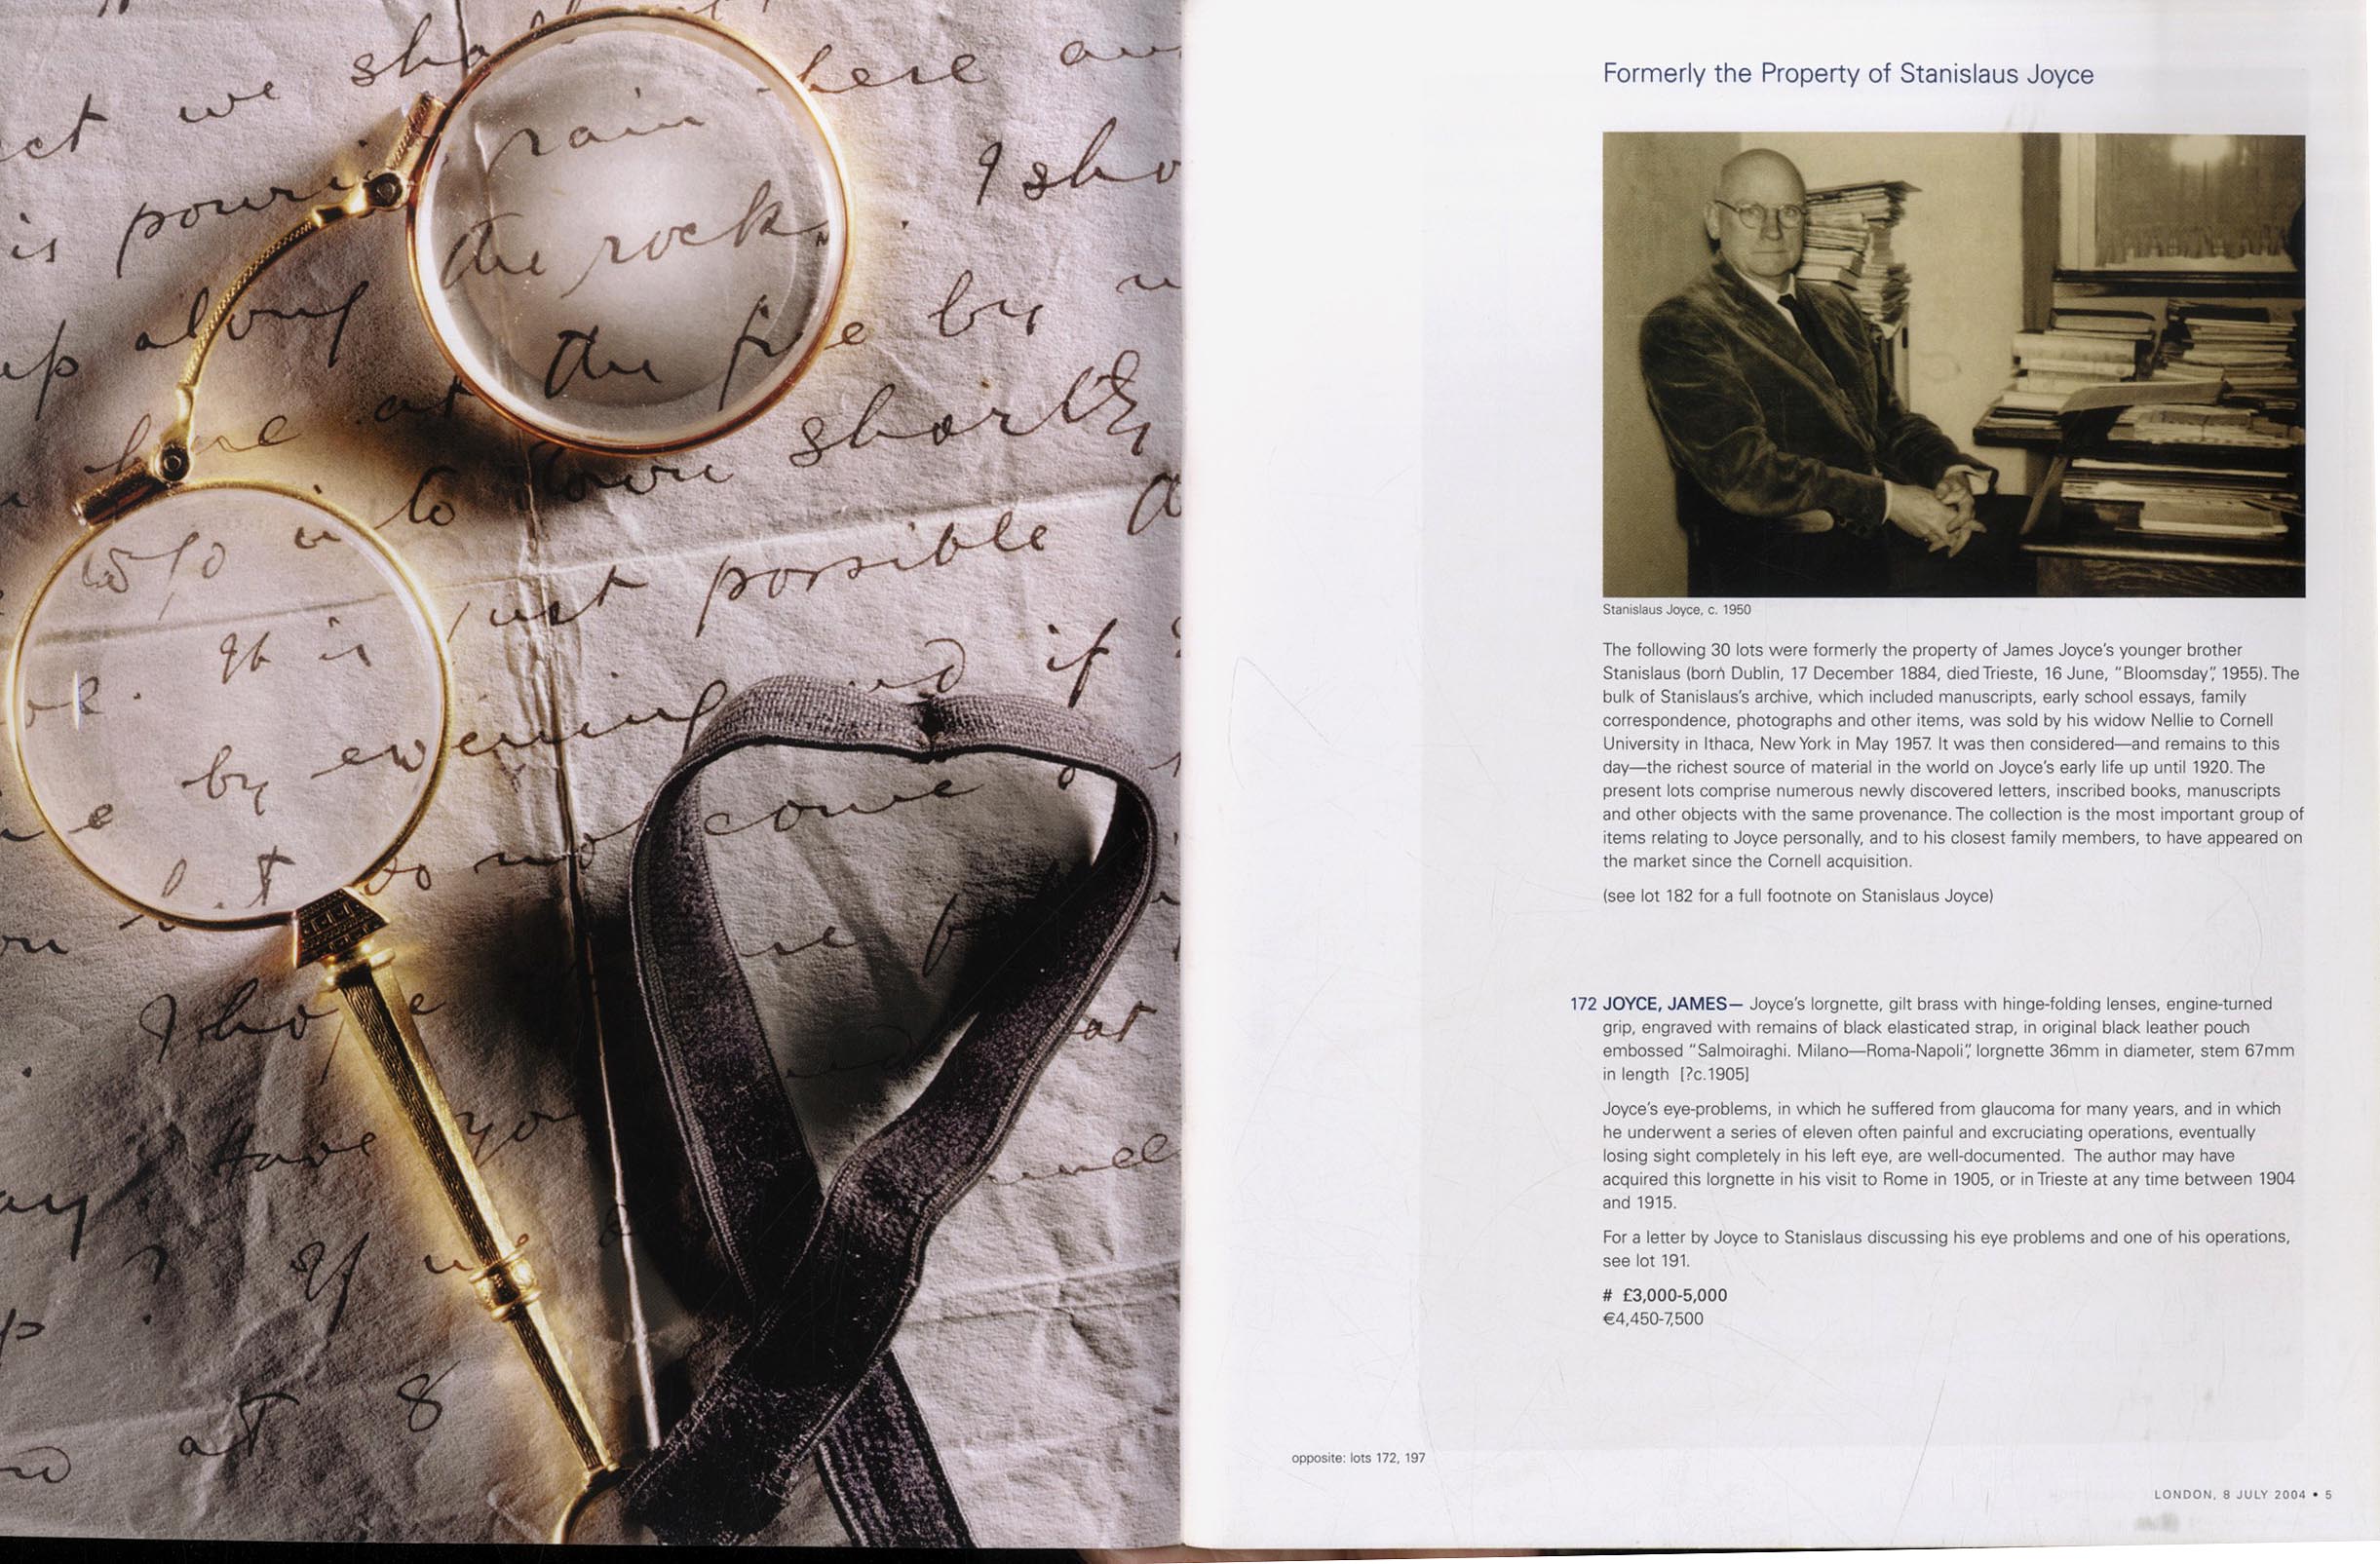 ct we sho here
is pouri rain . I sho
up along the rock,
here at the fire by
to town shortly
It is just possible
by evening and if
but do not come
I hope
Have you
? If we
at 8
Formerly the Property of Stanislaus Joyce
Stanislaus Joyce, c. 1950
The following 30 lots were formerly the property of James Joyce's younger brother
Stanislaus (born Dublin, 17 December 1884, died Trieste, 16 June, "Bloomsday", 1955). The
bulk of Stanislaus's archive, which included manuscripts, early school essays, family
correspondence, photographs and other items, was sold by his widow Nellie to Cornell
University in Ithaca, New York in May 1957. It was then considered—and remains to this
day—the richest source of material in the world on Joyce's early life up until 1920. The
present lots comprise numerous newly discovered letters, inscribed books, manuscripts
and other objects with the same provenance. The collection is the most important group of
items relating to Joyce personally, and to his closest family members, to have appeared on
the market since the Cornell acquisition.
(see lot 182 for a full footnote on Stanislaus Joyce)
172 JOYCE, JAMES— Joyce's lorgnette, gilt brass with hinge-folding lenses, engine-turned
grip, engraved with remains of black elasticated strap, in original black leather pouch
embossed "Salmoiraghi. Milano—Roma-Napoli", lorgnette 36mm in diameter, stem 67mm
in length [?c.1905]
Joyce's eye-problems, in which he suffered from glaucoma for many years, and in which
he underwent a series of eleven often painful and excruciating operations, eventually
losing sight completely in his left eye, are well-documented. The author may have
acquired this lorgnette in his visit to Rome in 1905, or in Trieste at any time between 1904
and 1915.
For a letter by Joyce to Stanislaus discussing his eye problems and one of his operations,
see lot 191.
# £3,000-5,000
€4,450-7,500
opposite: lots 172, 197
LONDON, 8 JULY 2004 • 5